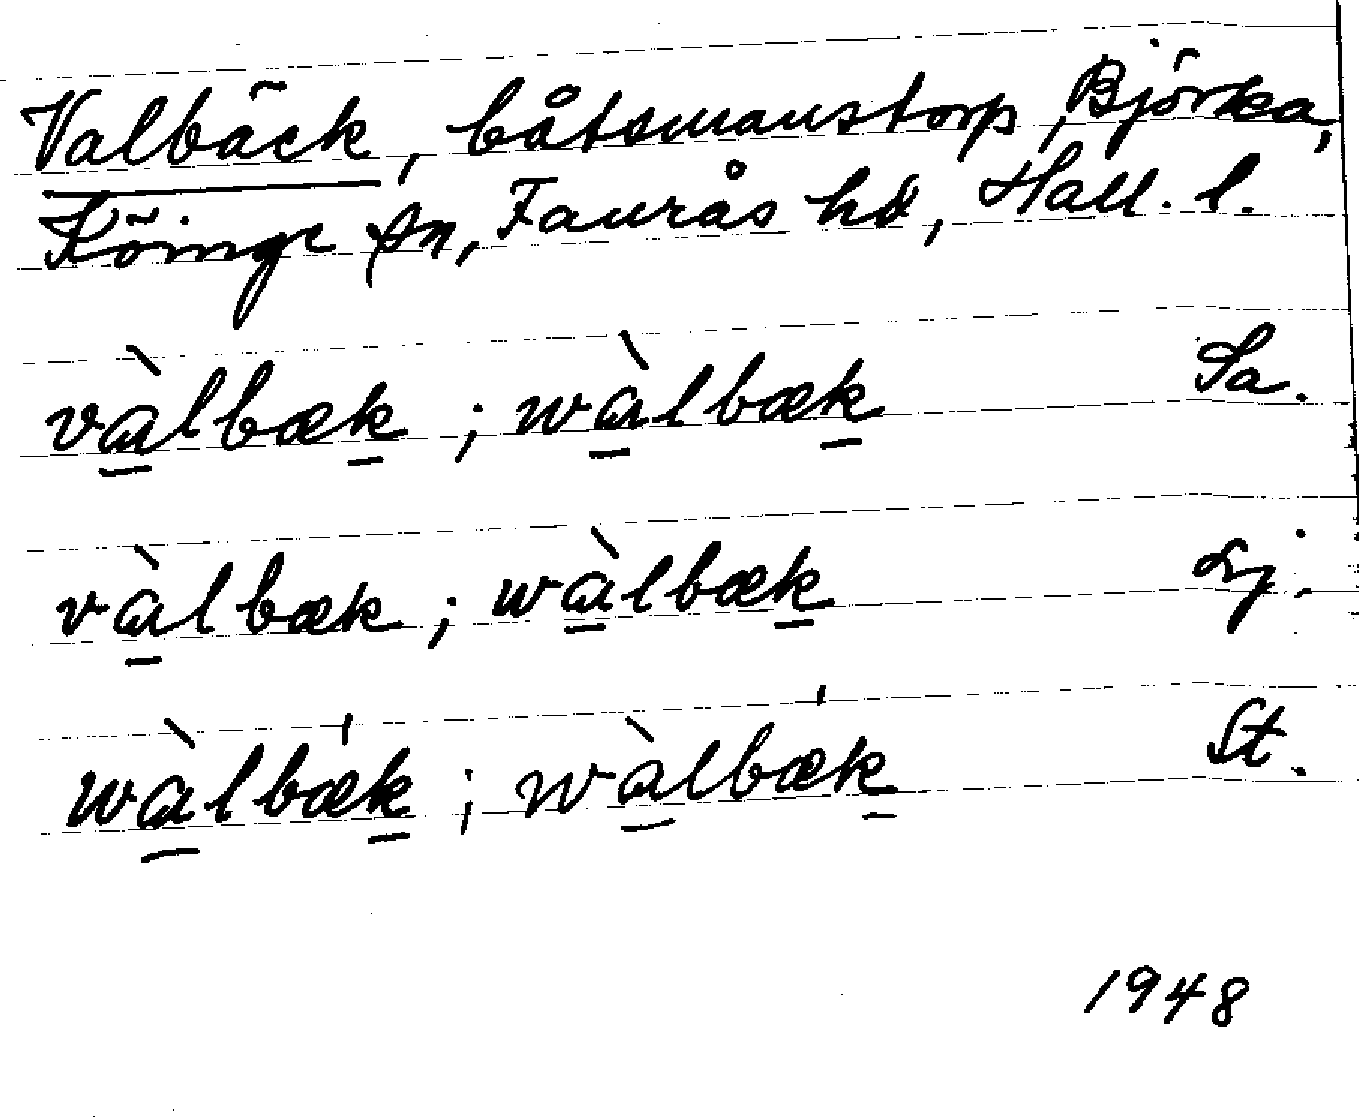 Valbäck, båtsmanstorp, Björka,
Köinge sn, Faurås hd, Hall. l.
vàlbæk ; wàlbæk Sa.
vàlbæk ; wàlbæk Lj.
wàlbæ'k ; wàlbæ'k St.
1948